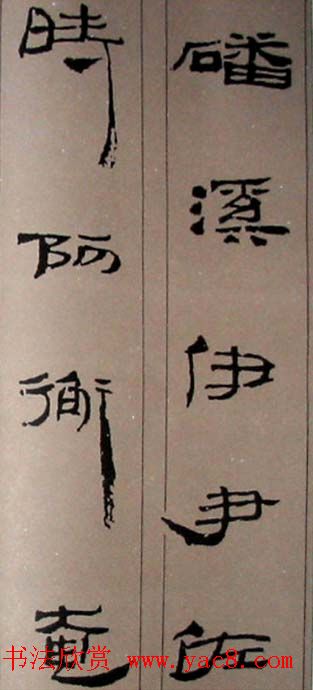 磻溪伊尹佐
時阿衡奄
书法欣赏 www.yac8.com